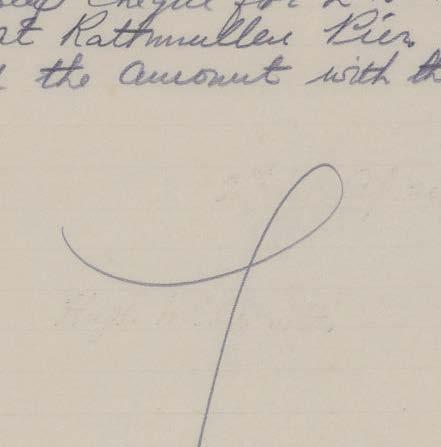 cheque for
at Rathmullen Pier
the amount with the